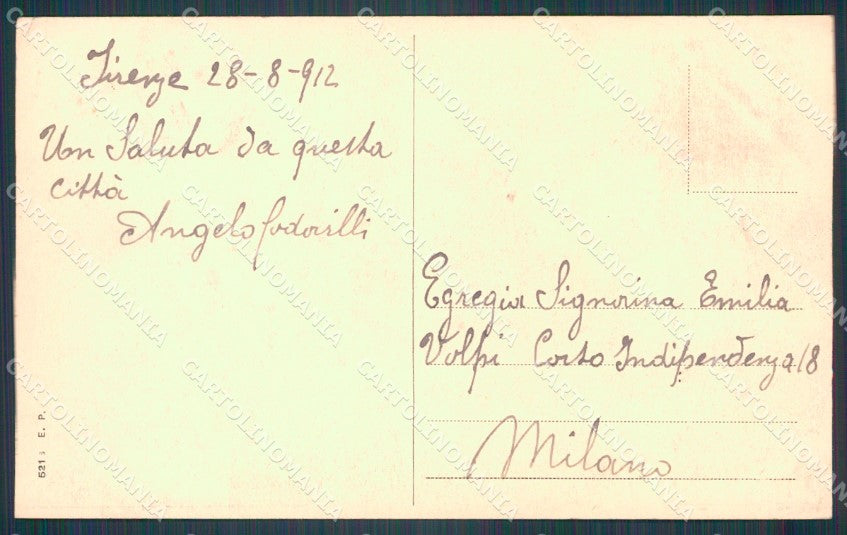 Firenze 28-8-912
Un Saluto da questa
città
Angelo
Egregia Signorina Emilia
Volpi Corso Indipendenza 18
Milano
E. P.
CARTOLINOMANIA